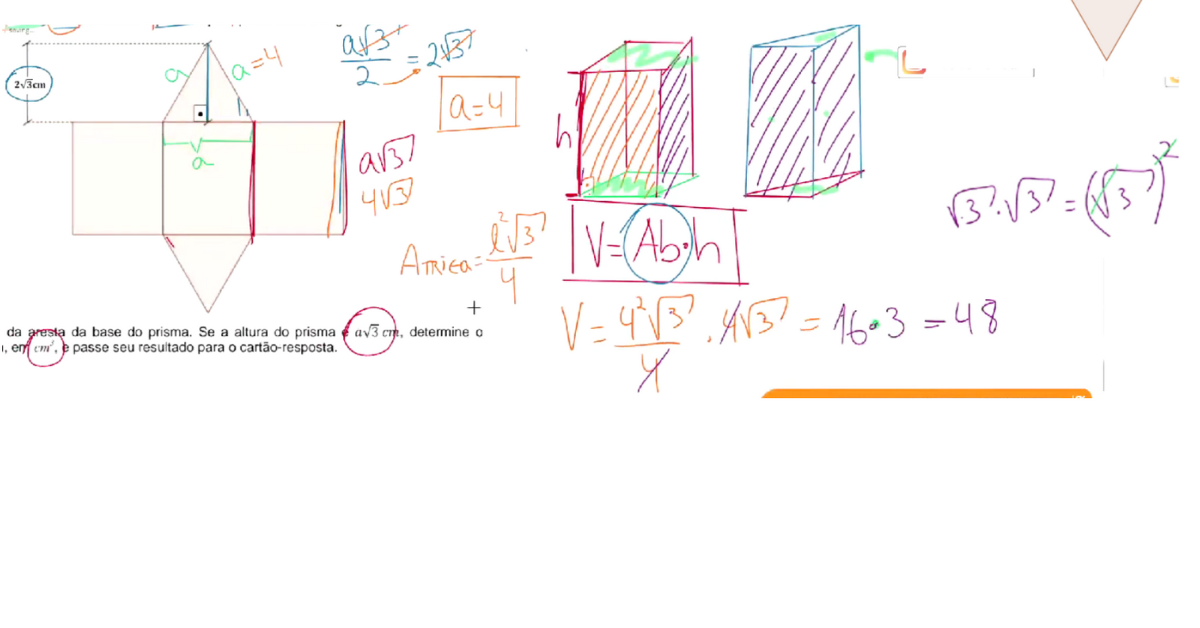 2√3cm
a
a=4
a
a√3/2 = 2√3
a=4
a√3
4√3
h
A TRIEQ = l²√3/4
V=Ab·h
√3·√3=(√3)²
V = 4²√3/4 · 4√3 = 16·3 = 48
da aresta da base do prisma. Se a altura do prisma é a√3 cm, determine o
, em cm³, e passe seu resultado para o cartão-resposta.